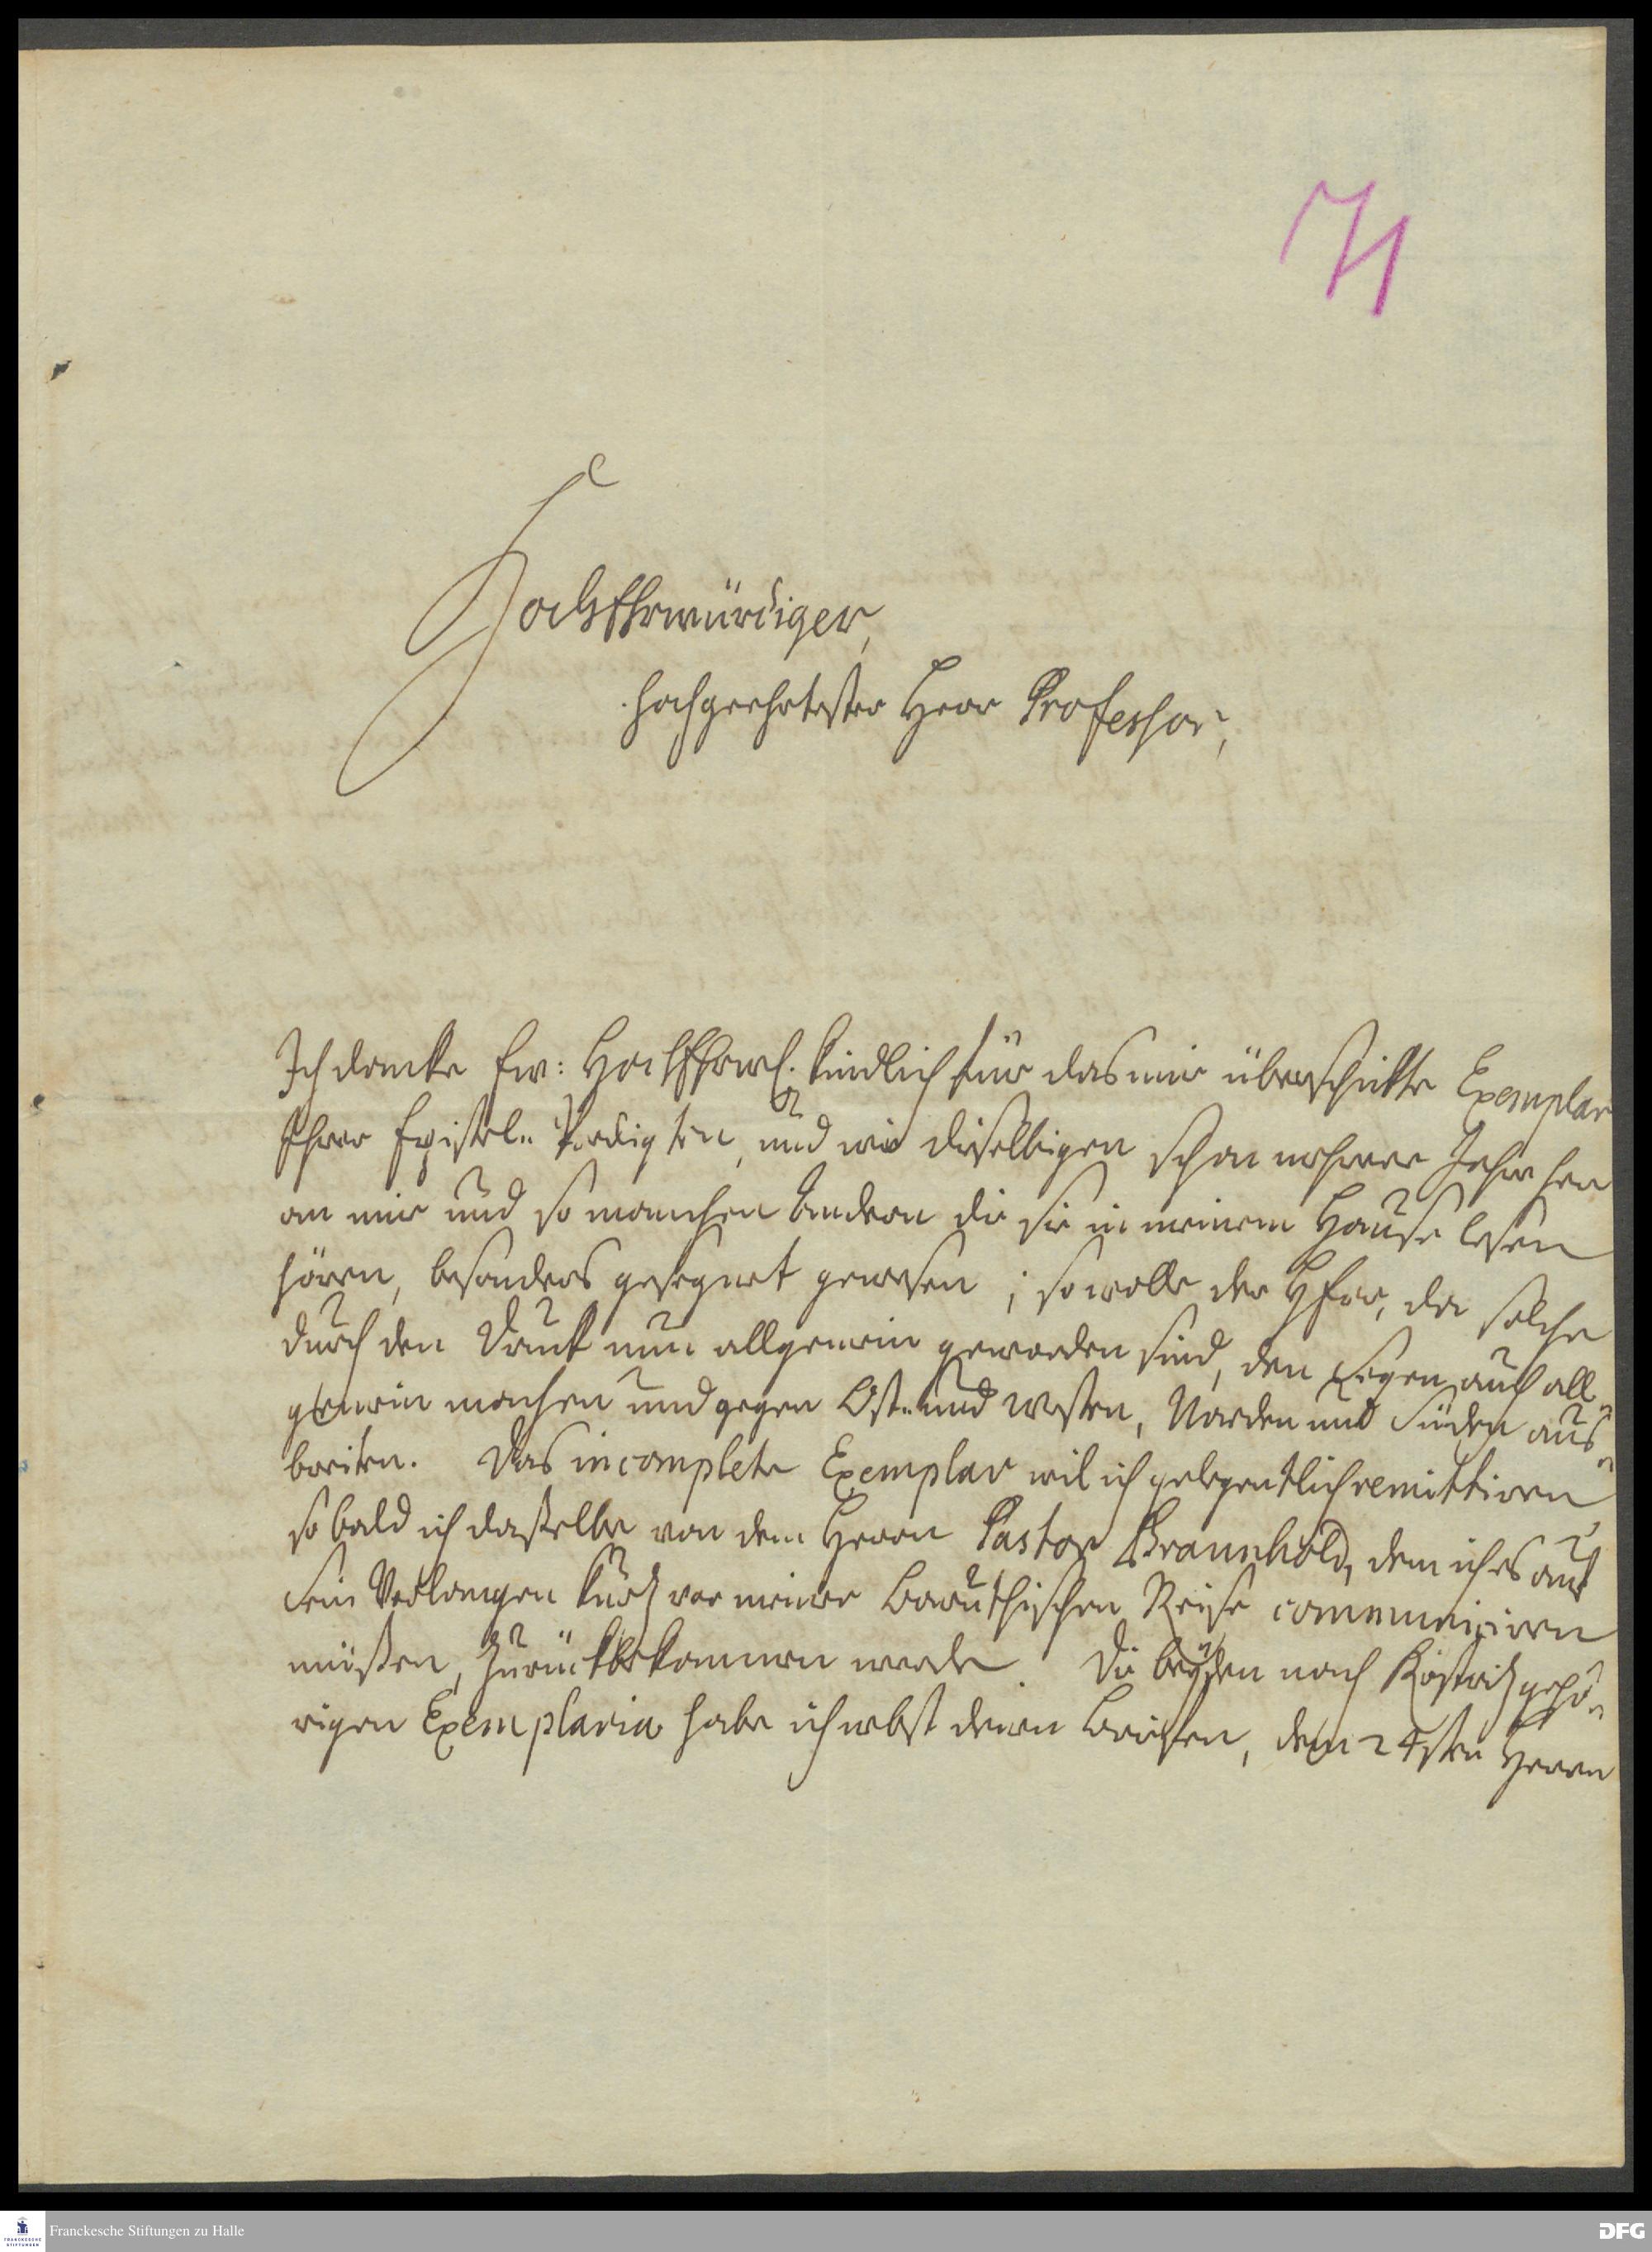 71
HochEhrwürdiger,
Hochgeehrtester Herr Professor,
Ich dancke Ew: HochEhrw. kindlich für das mir überschickte Exemplar
Ihrer Epistel-Predigten, und wie dieselbigen schon mehrere Jahre her
an mir und so manchen andern die sie in meinem Hause lesen
hören, besonders gesegnet gewesen; so wolle der HErr, da solche
durch den Druck nun allgemein geworden sind, den Segen auch all-
gemein machen und gegen Ost- und Westen, Norden und Süden aus-
breiten. Das incomplete Exemplar wil ich gelegentlich remittiren
so bald ich dasselbe von dem Herrn Pastor Braunhold, dem ich es auf
sein Verlangen kurtz vor meiner Baruthischen Reise communiciren
müßen, zurück bekommen werde. Die beyden nach Köstritz gehö-
rigen Exemplaria habe ich nebst denen Briefen, dem 24sten Herrn
Franckesche Stiftungen zu Halle
DFG